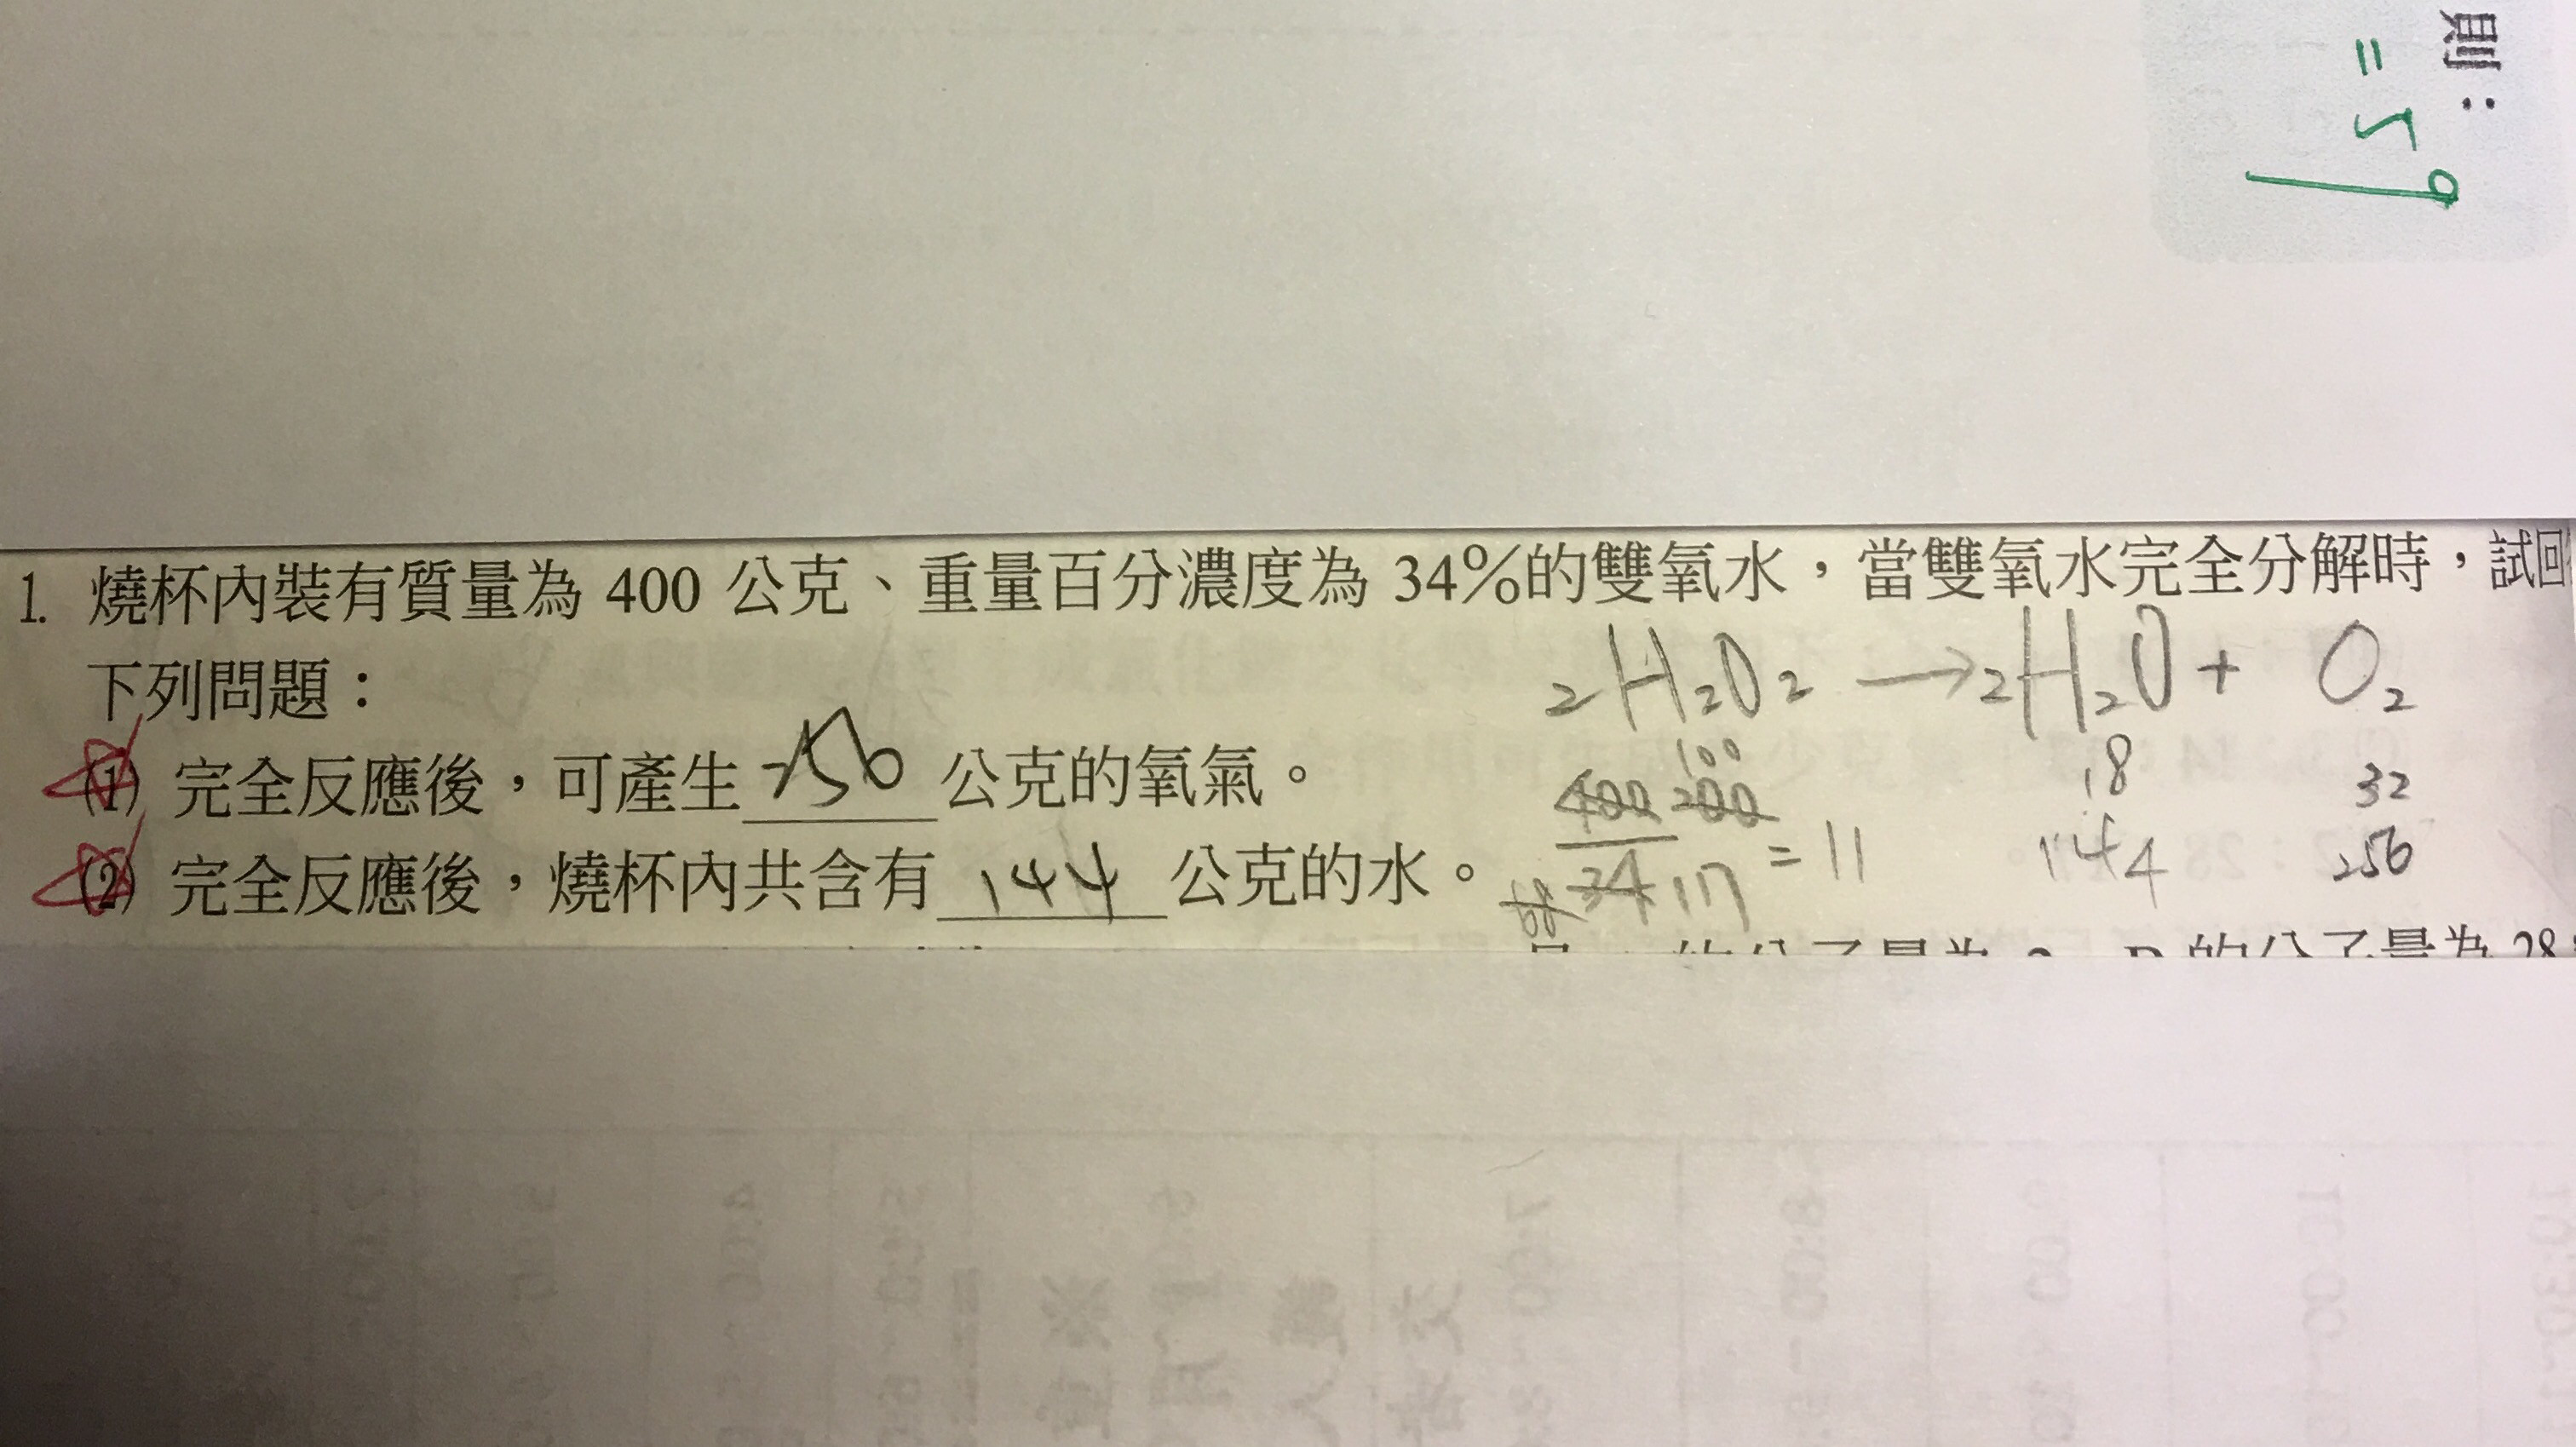 則：
= 59
1. 燒杯內裝有質量為 400 公克、重量百分濃度為 34%的雙氧水，當雙氧水完全分解時，試回
下列問題：
2H₂O₂ → 2H₂O + O₂
(1) 完全反應後，可產生 256 公克的氧氣。
100
400 200
18
32
(2) 完全反應後，燒杯內共含有 144 公克的水。
34 17 = 11
144
256
68
的分子量為 28